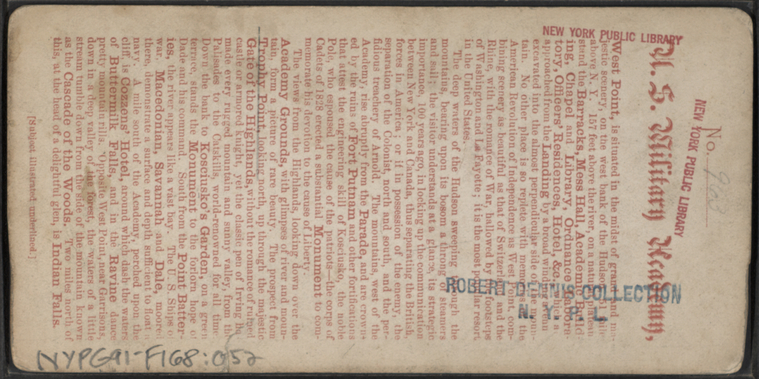 No. 968
U. S. Military Academy,
West Point, is situated in the midst of grand and
scenery, on the west bank of the Hudson,
above N. Y. 157 feet above the river, on a natural
stand the Barracks, Mess Hall, Academic
ing, Chapel and Library, Ordnance
tory, Officers' Residences, Hotel, &c.
approached from the Landing by a
excavated into the almost perpendicular side of the
tain. No other place is so replete with memories of the
American Revolution of Independence as West Point, com-
bining scenery as beautiful as that of Switzerland and the
Rhine, with the interest of War, hallowed by the footsteps
of Washington and La Fayette; it is the most popular resort
in the United States.
The deep waters of the Hudson sweeping through the
mountains, bearing upon its bosom a throng of steamers
and sails, the visitor understands at a glance, its strategic
importance, 100 years ago, locking up the communication
between New York and Canada, by separating the British
forces in America; or if in possession of the enemy, the
separation of the Colonist, north and south, and the per-
fidious treachery of Arnold. The mountains, west of the
Academy, rise abruptly from the Parade, and are crown-
ed by the ruins of Fort Putnam and other fortifications
that attest the engineering skill of Kosciusko, the noble
Pole, who espoused the cause of the patriots—the corps of
Cadets of 1828 erected a substantial Monument to com-
memorate his former devotion to the cause of Liberty.
The views from the Highlands, looking down over the
Academy Grounds, with glimpses of river and moun-
tain, form a picture of rare beauty. The prospect from
Trophy Point, looking north, up through the majestic
Gate of the Highlands, with here and there a ruined
castle or armed knight, yet the classic pens of Irving
made every rugged mountain and sunny valley, from the
Palisades to the Catskills, world-renowned for all time.
Down the bank to Kosciusko's Garden, on a green
terrace, stands the Monument to the forlorn hope of
Dade and his command. South of the Point Batter-
ies, the river appears like a vast bay. The U. S. Ships of
war, Macedonian, Savannah and Dale, moored
there, demonstrate a surface and depth sufficient to float a
navy. A mile south of the Academy, perched upon the
cliff is Cozzens' Hotel, around which dash the waters
of Buttermilk Falls, and in the Ravine dance
pretty mountain rills. Opposite West Point, near Garrison's,
down in a deep valley of the forest, the waters of a little
stream tumble down from the side of the mountain known
as the Cascade of the Woods. Two miles north of
this, at the head of a delightful glen, is Indian Falls.
[Subject illustrated underlined.]
NEW YORK PUBLIC LIBRARY
NEW YORK PUBLIC LIBRARY
ROBERT DENNIS COLLECTION
N. Y. P. L.
NYPG91-F168:052